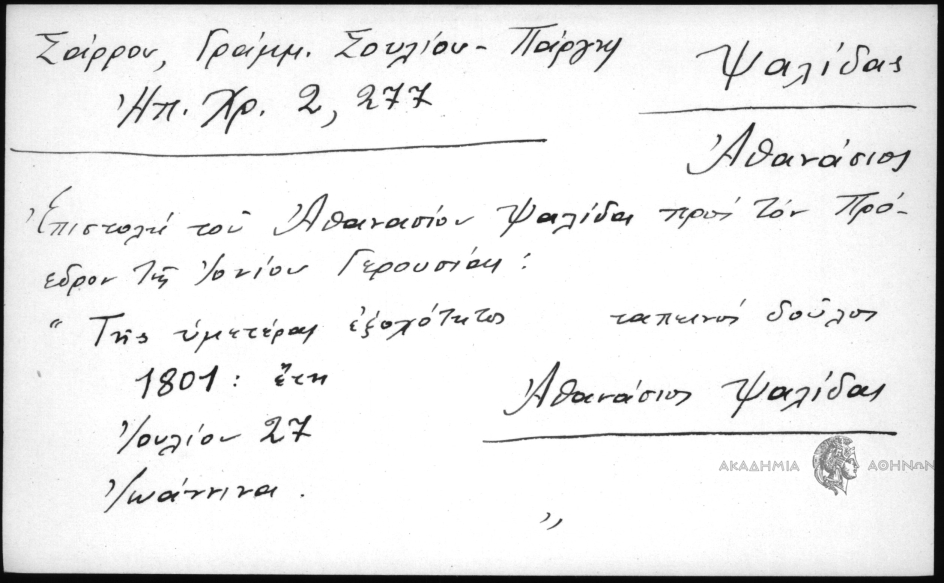 Σάρρου, Γράμμ. Σουλίου - Πάργης
Ἠπ. Χρ. 2, 277
Ψαλίδας
Ἀθανάσιος
Ἐπιστολὴ τοῦ Ἀθανασίου Ψαλίδα πρὸς τὸν Πρό-
εδρον τῆς Ἰονίου Γερουσίας :
" Τῆς ὑμετέρας ἐξοχότητος ταπεινὸς δοῦλος
1801 : ἔτη
Ἀθανάσιος Ψαλίδας
Ἰουλίου 27
Ἰωάννινα .
"
ΑΚΑΔΗΜΙΑ ΑΘΗΝΩΝ